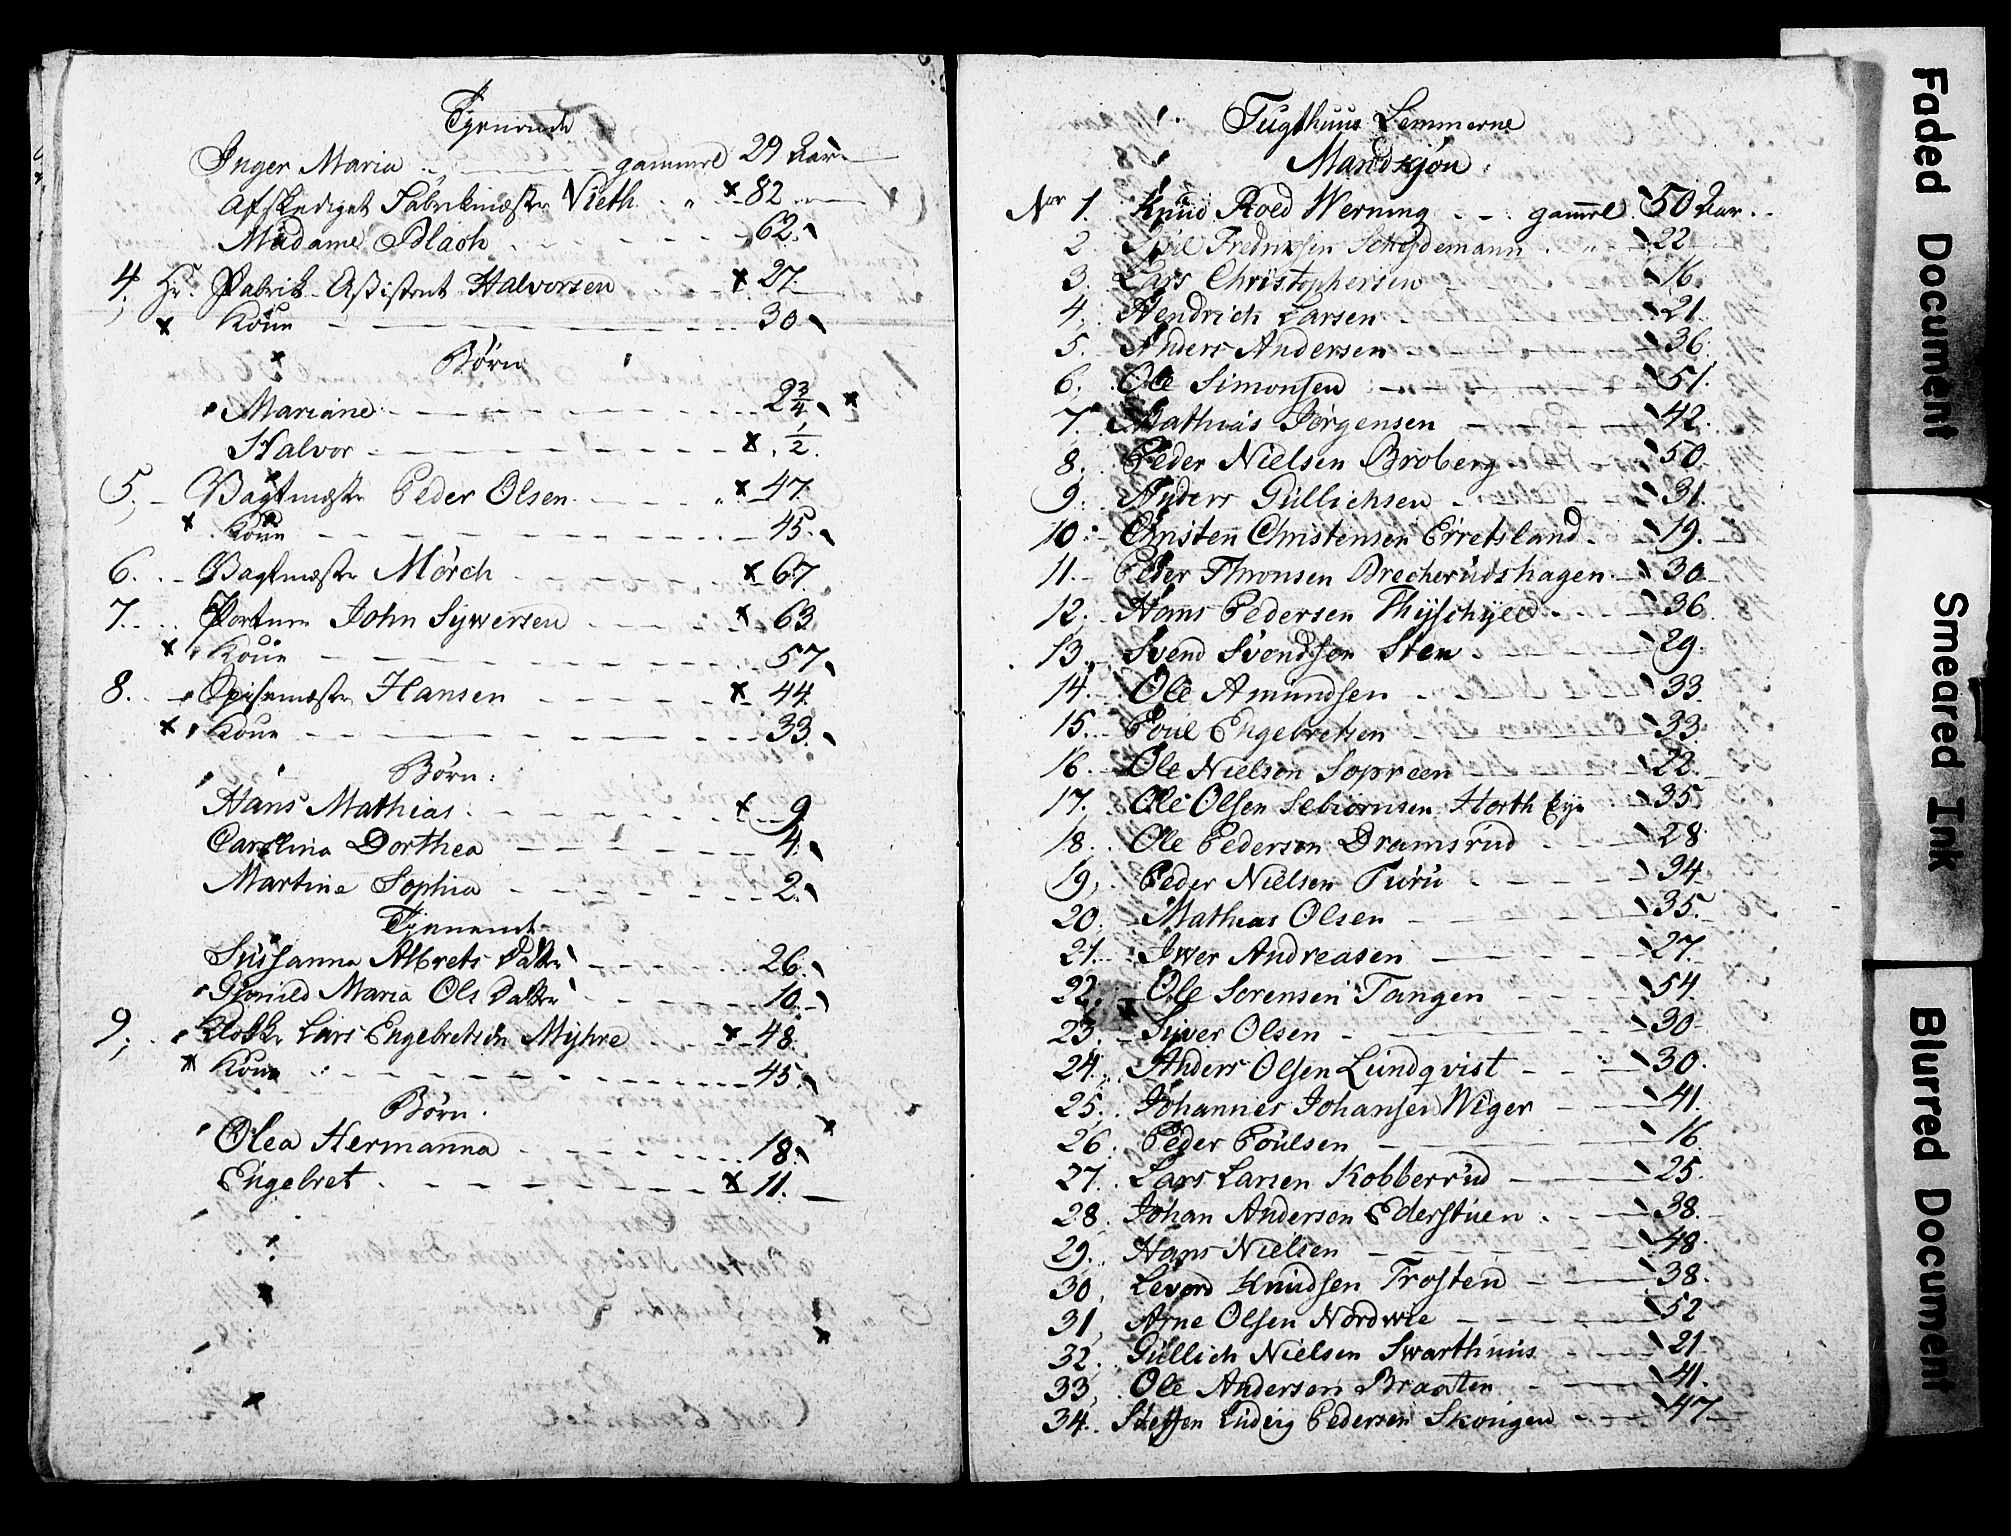 Tjenende
Inger Maria gammel 29 Aar
Afskediget Fabrikmæster Vieth " x 82
Madame Blach 62.
4, Hr. Fabrik Assistent Halvorsen x 27.
x Kone 30
Børn
Mariane 2 3/4 x
Halvor x 1/2.
5, Vagtmæster Peder Olsen " x 47
x Kone 45.
6. Vagtmæster Mörch x 67
7. Portner John Sywersen x 63
x Kone 57
8. Spisemæster Hansen x 44
x Kone 33.
Børn:
Hans Mathias x 9
Carolina Dorthea 4.
Martine Sophia 2.
Tjenende
Sussanna Albrets Datter 26.
Maria Ols Datter 10.
9, Klokker Lars Engebretsen Myhre x 48
x Kone 45.
Børn.
Olea Hermanna 18.
Engebret x 11.
Tugthuus Lemmerne
Mandkjøn
Nor 1. Knud Roed Werning gammel 50 Aar
2. Fredriksen Scheydemann " 22
3. Lars Christophersen 16
4. Hendrich Larsen 21
5. Anders Andersen 36
6. Ole Simonsen 51.
7. Mathias Jörgensen 42.
8. Peder Nielsen Broberg 50
9. Anders Gullichsen 31
10. Christen Christensen Erretsland 19.
11. Peder Thronsen Brecherudshagen 30
12. Hans Pedersen 36
13. Svend Svendsen Sten 29.
14. Ole Amundsen 33
15. Poul Engebretsen 33
16. Ole Nielsen Sopreen 22.
17. Ole Olsen Sebiörnsen Horth Eye 35
18. Ole Pedersen Dramsrud 28
19, Peder Nielsen Turu 34
20. Mathias Olsen 35.
21. Iwer Andreasen 27.
22. Ole Sorensen Tangen 54
23. Siver Olsen 30
24. Anders Olsen Lundqvist 30.
25. Johannes Johansen Weger 41
26. Peder Poulsen 16
27. Lars Larsen Kobberrud 25
28. Johan Andersen Ederstuen 38.
29. Hans Nielsen 48
30, Levord Knudsen Trosten 38.
31, Arne Olsen Nordwie 52
32. Gullich Nielsen Swarthuus 21
33, Ole Andersen Braaten 41.
34. Steffen Ludvig Pedersen Skougen 47
Faded Document
Smeared Ink
Blurred Document